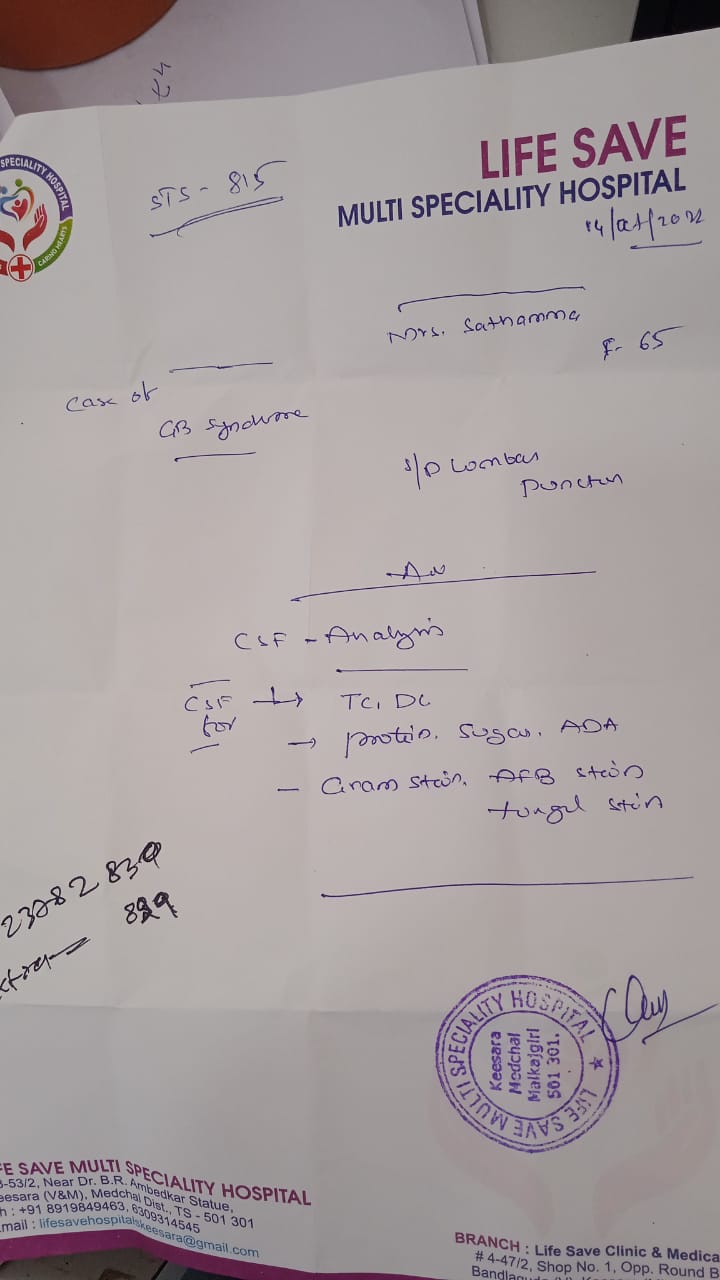 SPECIALITY HOSPITAL
CARING HEARTS
STS - 815
LIFE SAVE
MULTI SPECIALITY HOSPITAL
Mrs. Sathamma
F- 65
Case of
GB Syndrome
S/P Lumbar
Puncture
CSF - Analysis
CSF
for
TC, DC
→ Protein, Sugar, ADA
- Gram Stain, AFB Stain
fungal Stain
839
MULTI SPECIALITY HOSPITAL ★ LIFE SAVE
Keesara
Medchal
Malkajgiri
501 301.
FE SAVE MULTI SPECIALITY HOSPITAL
-53/2, Near Dr. B.R. Ambedkar Statue,
eesara (V&M), Medchal Dist., TS - 501 301
h : +91 8919849463, 6309314545
mail : lifesavehospitalskeesara@gmail.com
BRANCH : Life Save Clinic & Medica
# 4-47/2, Shop No. 1, Opp. Round B